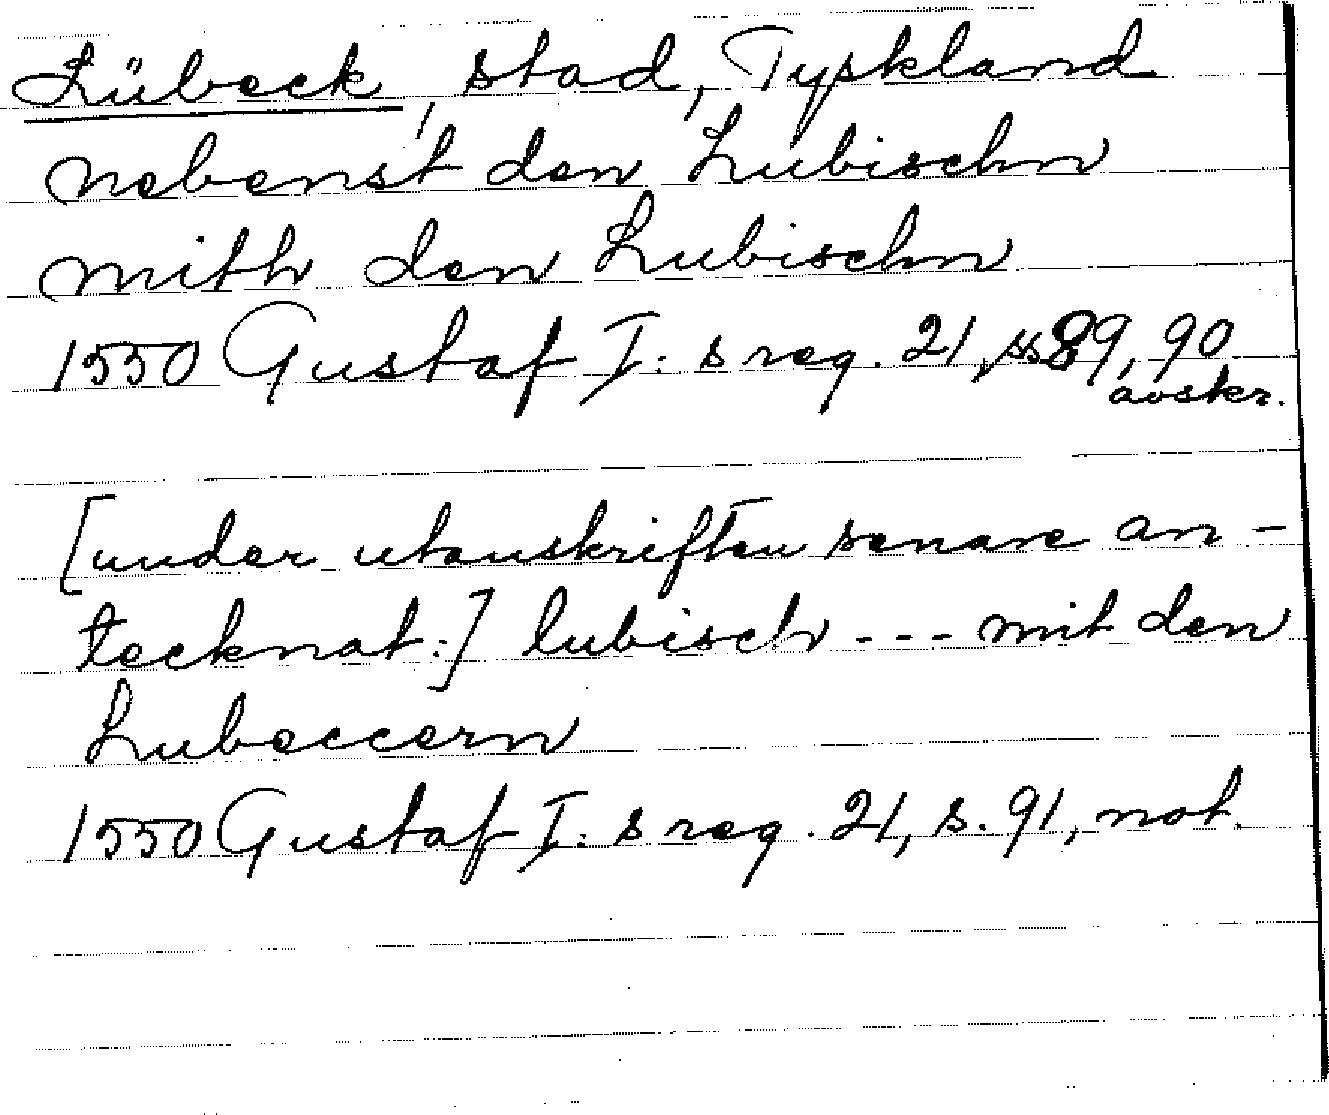 Lübeck, stad, Tyskland
nebenst den Lubischn
mith den Lubischn
1550 Gustaf I:s reg. 21, ss 89, 90
avskr.
[under utanskriften senare an-
tecknat:] lubisch --- mit den
Lubeccern
1550 Gustaf I:s reg. 21, s. 91, not.